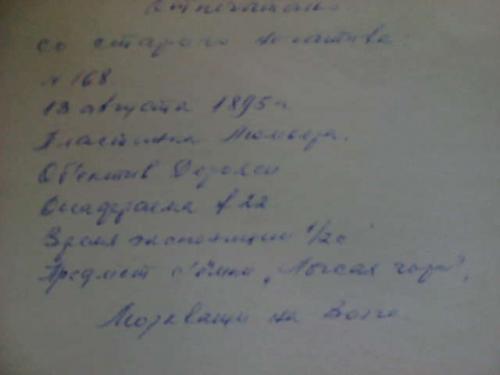 Отпечатано
со старого негатива.
№ 168
13 августа 1895 г.
Пластинка Люмьера.
Объектив
Диафрагма f 22
Время экспозиции 1/2 с
Предмет съёмки „Лысая гора",
Моркваши на Волге.